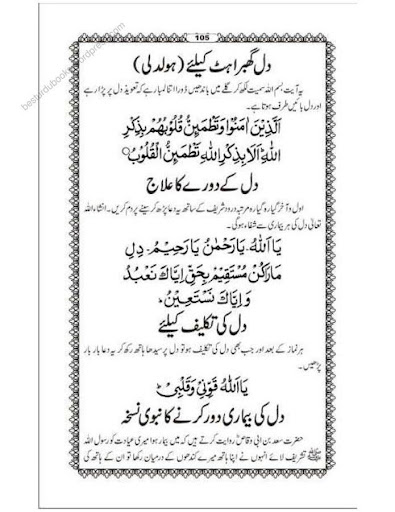 besturdubooks.wordpress.com
105
دل گھبراہٹ کیلئے (ہولدلی)
یہ آیت بسم اللہ سمیت لکھ کر گلے میں باندھیں ڈورا اتنا لمبا رہے کہ تعویذ دل پر پڑا رہے
اور دل بائیں طرف ہوتا ہے۔
اَلَّذِیْنَ اٰمَنُوْا وَتَطْمَئِنُّ قُلُوْبُھُمْ بِذِکْرِ
اللّٰہِ اَلَا بِذِکْرِ اللّٰہِ تَطْمَئِنُّ الْقُلُوْبُ
دل کے دورے کا علاج
اول و آخر گیارہ گیارہ مرتبہ درود شریف کے ساتھ یہ دعا پڑھ کر سینے پر دم کریں۔ انشاء اللہ
تعالیٰ دل کی ہر بیماری سے شفاء ہوگی۔
یَا اَللّٰہُ۔ یَارَحْمٰنُ۔ یَارَحِیْمُ۔ دِلِ
مَارَاکُنْ مُسْتَقِیْمْ بِحَقِّ اِیَّاکَ نَعْبُدُ
وَ اِیَّاکَ نَسْتَعِیْنُ۔
دل کی تکلیف کیلئے
ہر نماز کے بعد اور جب بھی دل کی تکلیف ہو تو دل پر سیدھا ہاتھ رکھ کر یہ دعا بار بار
پڑھیں۔
یَا اَللّٰہُ قَوِّنِیْ وَقَلْبِیْ
دل کی بیماری دور کرنے کا نبوی نسخہ
حضرت سعد بن ابی وقاص روایت کرتے ہیں کہ میں بیمار ہوا میری عیادت کو رسول اللہ
ﷺ تشریف لائے انہوں نے اپنا ہاتھ میرے کندھوں کے درمیان رکھا تو ان کے ہاتھ کی